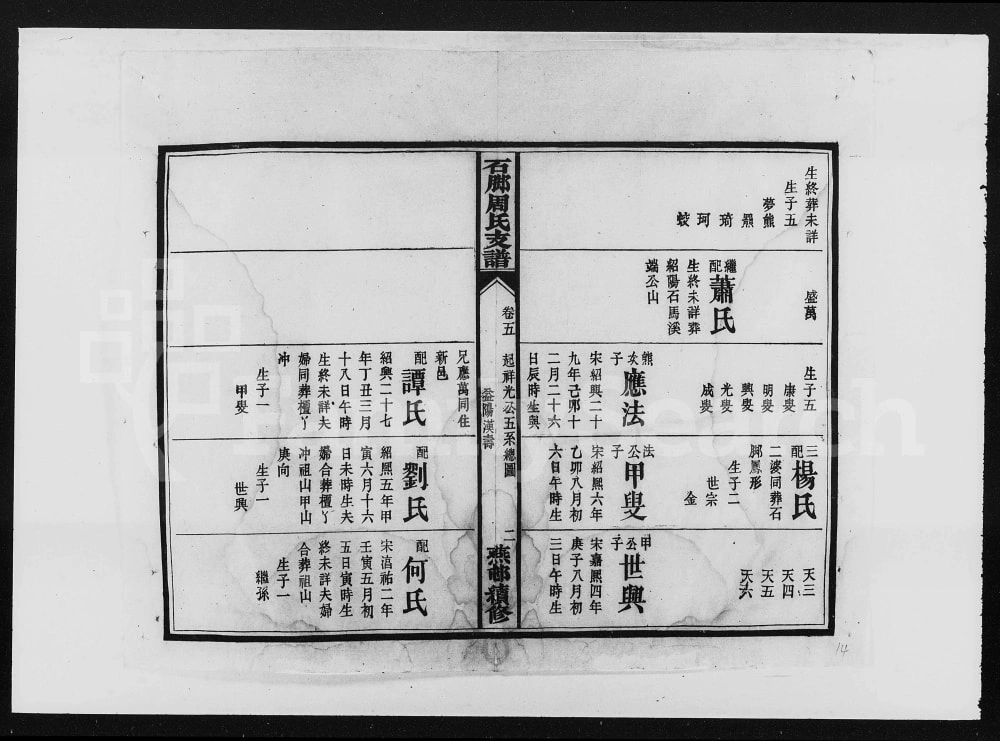 生終葬未詳
生子五
夢熊
羆
琦
珂
蛟
盛萬
繼配
蕭氏
生終未詳葬
紹陽石馬溪
端公山
生子五
康叟
明叟
興叟
光叟
成叟
熊次子
應法
宋紹興二十
九年己卯十
二月二十六
日辰時生與
三配
楊氏
二婆同葬石
脚鳳形
生子二
世宗
金
法公子
甲叟
宋紹熙六年
乙卯八月初
六日午時生
天三
天四
天五
天六
甲公子
世興
宋嘉熙四年
庚子八月初
三日午時生
石脚周氏支譜
卷五
起祥光公五系總圖
益陽漢壽
二
燕郇續修
兄應萬同住
新邑
配
譚氏
紹興二十七
年丁丑三月
十八日午時
生終未詳夫
婦同葬檀丫
冲
生子一
甲叟
配
劉氏
紹熙五年甲
寅六月十六
日未時生夫
婦合葬檀丫
冲祖山甲山
庚向
生子一
世興
配
何氏
宋淳祐二年
壬寅五月初
五日寅時生
終未詳夫婦
合葬祖山
生子一
繼孫
14
FamilySearch